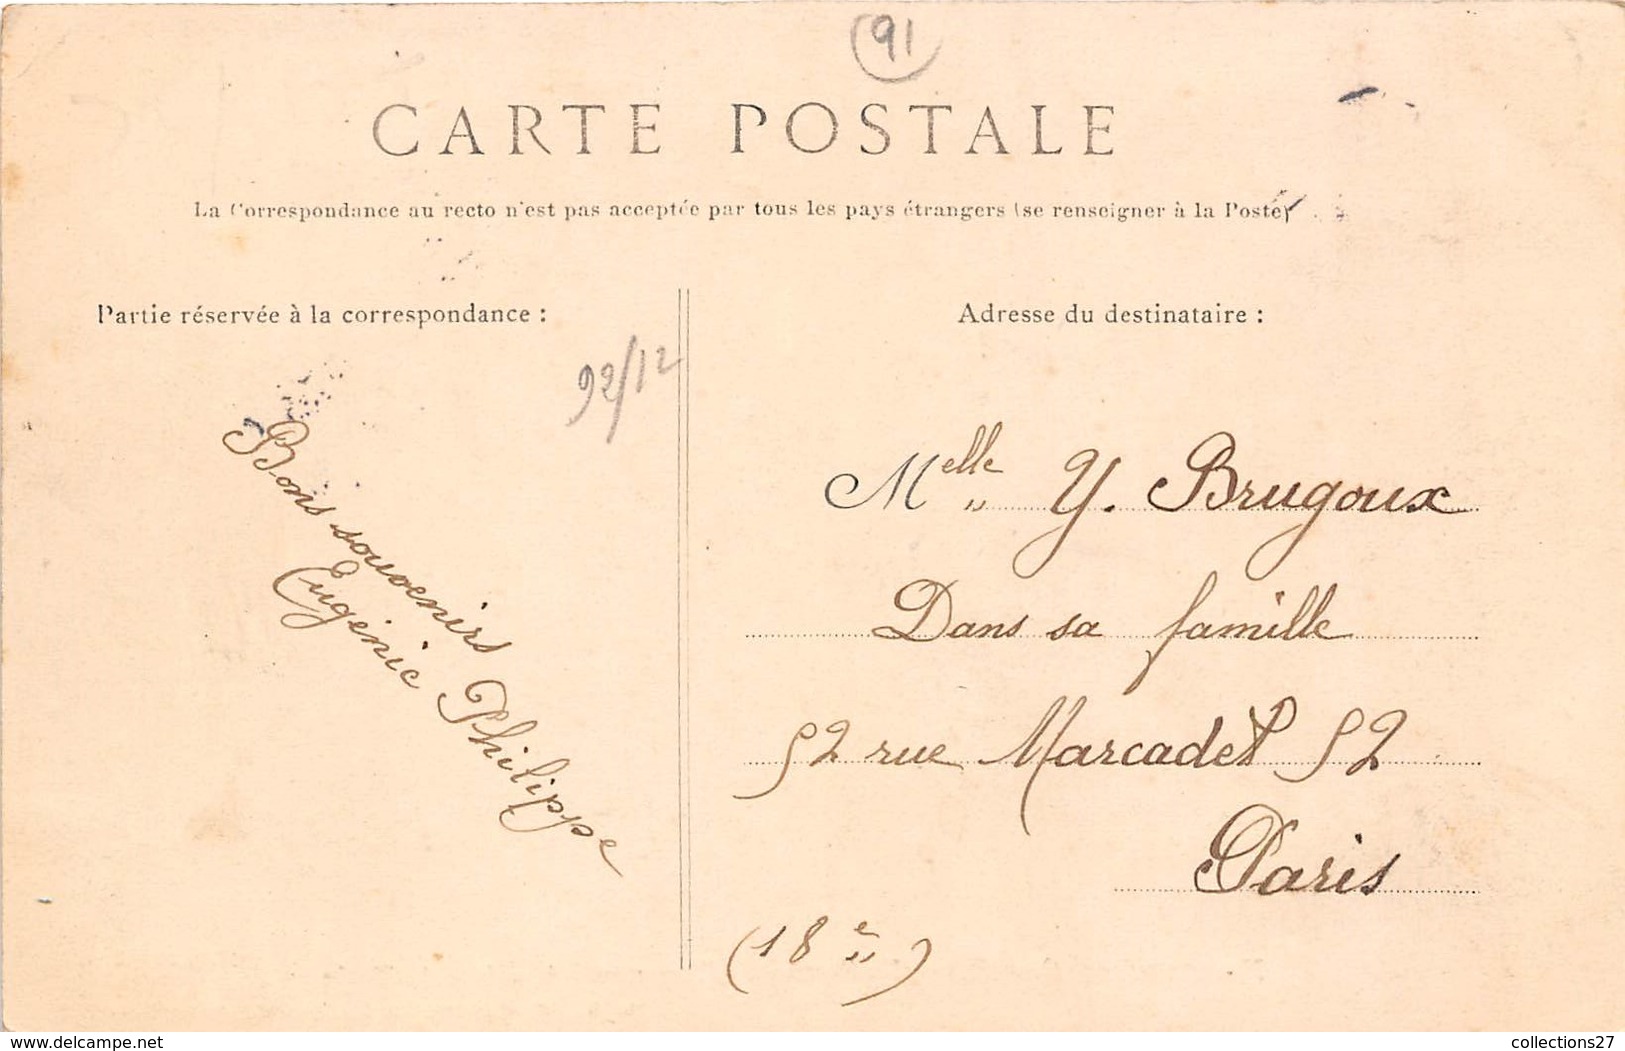 91
CARTE POSTALE
La Correspondance au recto n'est pas acceptée par tous les pays étrangers (se renseigner à la Poste)
Partie réservée à la correspondance :
92/12
Bons souvenirs
Eugénie Philippe
Adresse du destinataire :
Melle Y. Brugoux
Dans sa famille
52 rue Marcadet 52
Paris
(18e)
www.delcampe.net
collections27